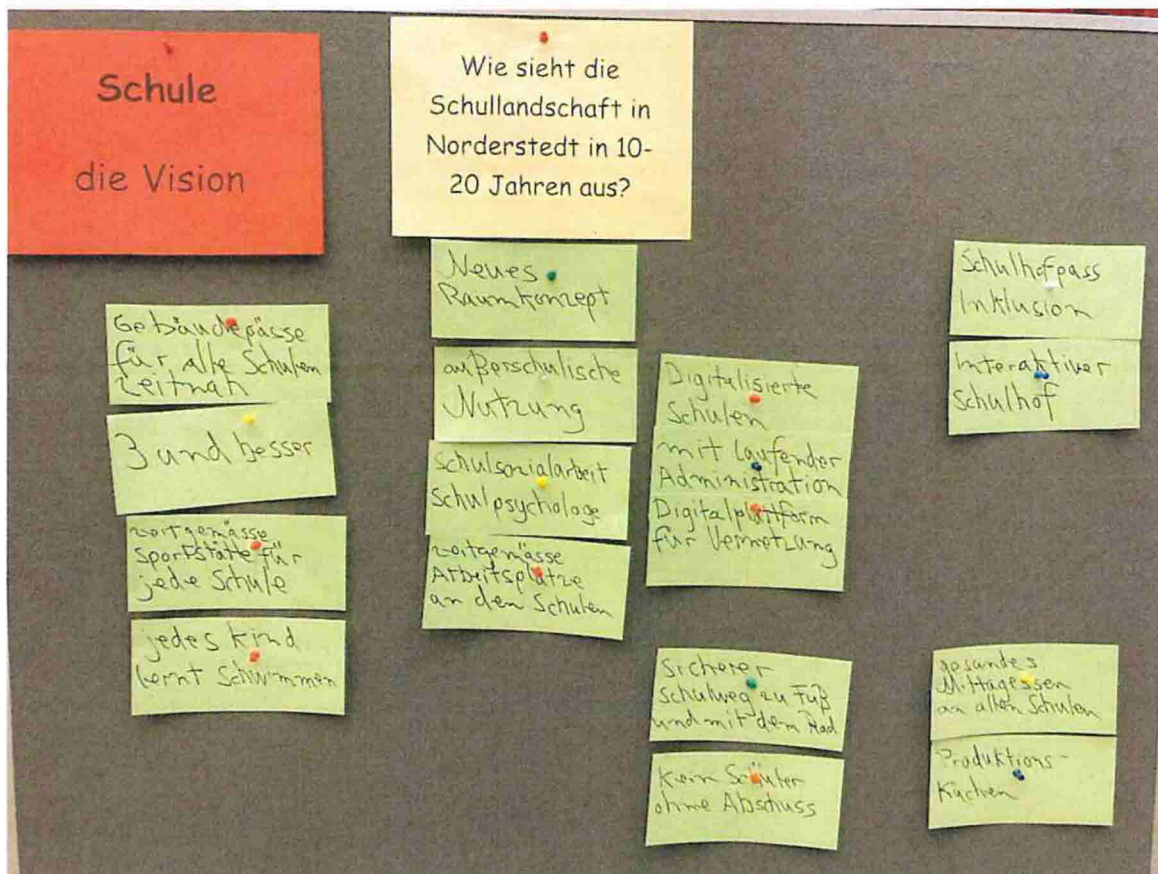 Schule
die Vision
Wie sieht die
Schullandschaft in
Norderstedt in 10-
20 Jahren aus?
Gebäudepässe
für alle Schulen
zeitnah
3 und besser
zeitgemässe
Sportstätte für
jede Schule
jedes Kind
lernt Schwimmen
Neues
Raumkonzept
außerschulische
Nutzung
Schulsozialarbeit
Schulpsychologe
zeitgemässe
Arbeitsplätze
an den Schulen
Digitalisierte
Schulen
mit laufender
Administration
Digitalplattform
für Vernetzung
Sicherer
Schulweg zu Fuß
und mit dem Rad
Kein Schüler
ohne Abschuss
Schulhofpass
Inklusion
Interaktiver
Schulhof
gesundes
Mittagessen
an allen Schulen
Produktions-
Küchen